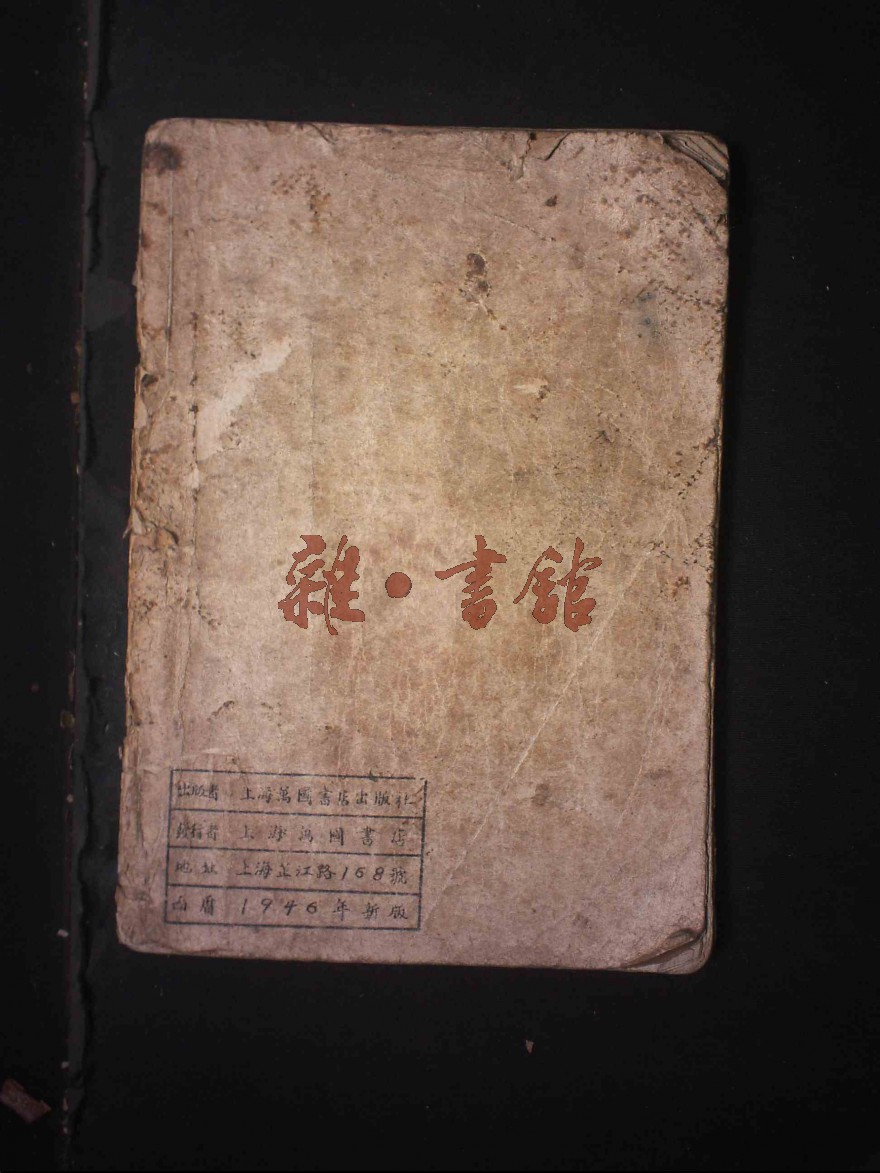 雜·書館
出版者 上海萬國書店出版社
發行者 上海萬國書店
地址 上海芷江路168號
西曆 1946年新版